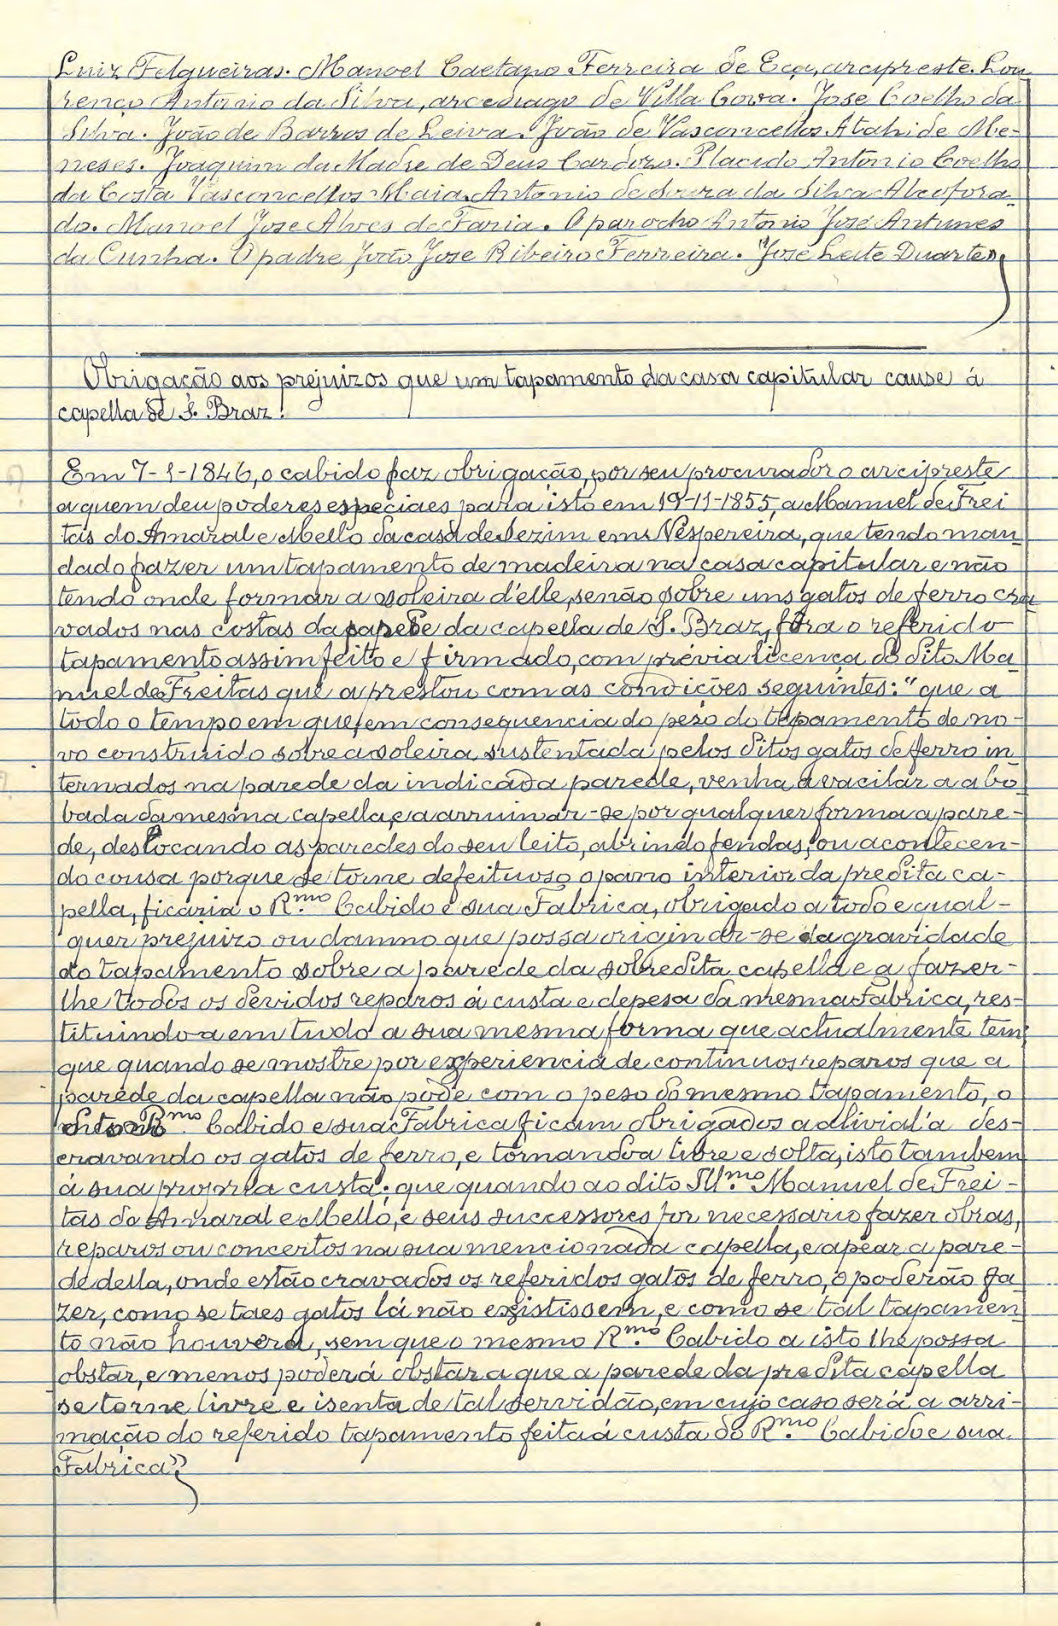 Luiz Felgueiras. Manoel Caetano Ferreira de Eça, arcipreste. Lou
renço Antonio da Silva, arcediago de Villa Cova. Jose Coelho da
Silva. João de Barros de Leiva. João de Vasconcellos Atahide Me-
neses. Joaquim da Madre de Deus Cardozo. Placido Antonio Coelho
da Costa Vasconcellos Maia. Antonio de Souza da Silva Alcofora-
do. Manoel Jose Alves de Faria. O parocho Antonio José Antunes
da Cunha. O padre João Jose Ribeiro Ferreira. José Leite Duarte,,
Obrigação aos prejuizos que um tapamento da casa capitular cause á
capella de S. Braz.
Em 7-1-1846, o cabido faz obrigação, por seu procurador o arcipreste
a quem deu poderes especiaes para isto em 19-11-1855, a Manuel de Frei
tas do Amaral e Mello da casa de Sezim em Nespereira, que tendo man-
dado fazer um tapamento de madeira na casa capitular e não
tendo onde formar a soleira d'elle, senão sobre uns gatos de ferro cra
vados nas costas da parede da capella de S. Braz, fôra o referido
tapamento assim feito e firmado, com prévia licença do dito Ma-
nuel de Freitas que a prestou com as condições seguintes: "que a
todo o tempo em que, em consequencia do peso do tapamento de no-
vo construido sobre a soleira sustentada pelos ditos gatos de ferro in
ternados na parede da indicada parede, venha a vacilar a abo
bada da mesma capella, e a arruinar-se por qualquer forma a pare-
de, deslocando as paredes do seu leito, abrindo fendas, ou acontecen-
do cousa porque se torne defeituoso o pano interior da predita ca-
pella, ficaria o R.mo Cabido e sua Fabrica, obrigado a todo e qual-
quer prejuizo ou damno que possa originar-se da gravidade
do tapamento sobre a parede da sobredita capella e a fazer-
lhe todos os devidos reparos á custa e depesa da mesma Fabrica, res-
tituindo-a em tudo a sua mesma forma que actualmente tem;
que quando se mostre por experiencia de continuos reparos que a
parede da capella não póde com o peso do mesmo tapamento, o
dito R.mo Cabido e sua Fabrica ficam obrigados a allivial'a des-
cravando os gatos de ferro, e tornando-a livre e solta, isto tambem
á sua propria custa; que quando ao dito Ill.mo Manuel de Frei-
tas do Amaral e Mello, e seus successores fôr necessario fazer obras,
reparos ou concertos na sua mencionada capella, e apear a pare-
de della, onde estão cravados os referidos gatos de ferro, o poderão fa
zer, como se taes gatos lá não existissem, e como se tal tapamen
to não houvera, sem que o mesmo R.mo Cabido a isto lhe possa
obstar, e menos poderá obstar a que a parede da predita capella
se torne livre e isenta de tal servidão, em cujo caso será a arri-
mação do referido tapamento feita á custa do R.mo Cabido e sua
Fabrica,,